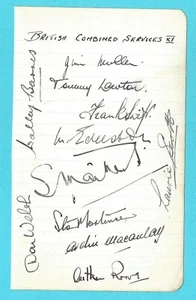 BRITISH COMBINED SERVICES XI
Jim Mullen
Tommy Lawton
Frank Swift
W. Edwards
Walley Barnes
Laurie Scott
Don Welsh
Stan Mortensen
Archie Macaulay
Arthur Rowe